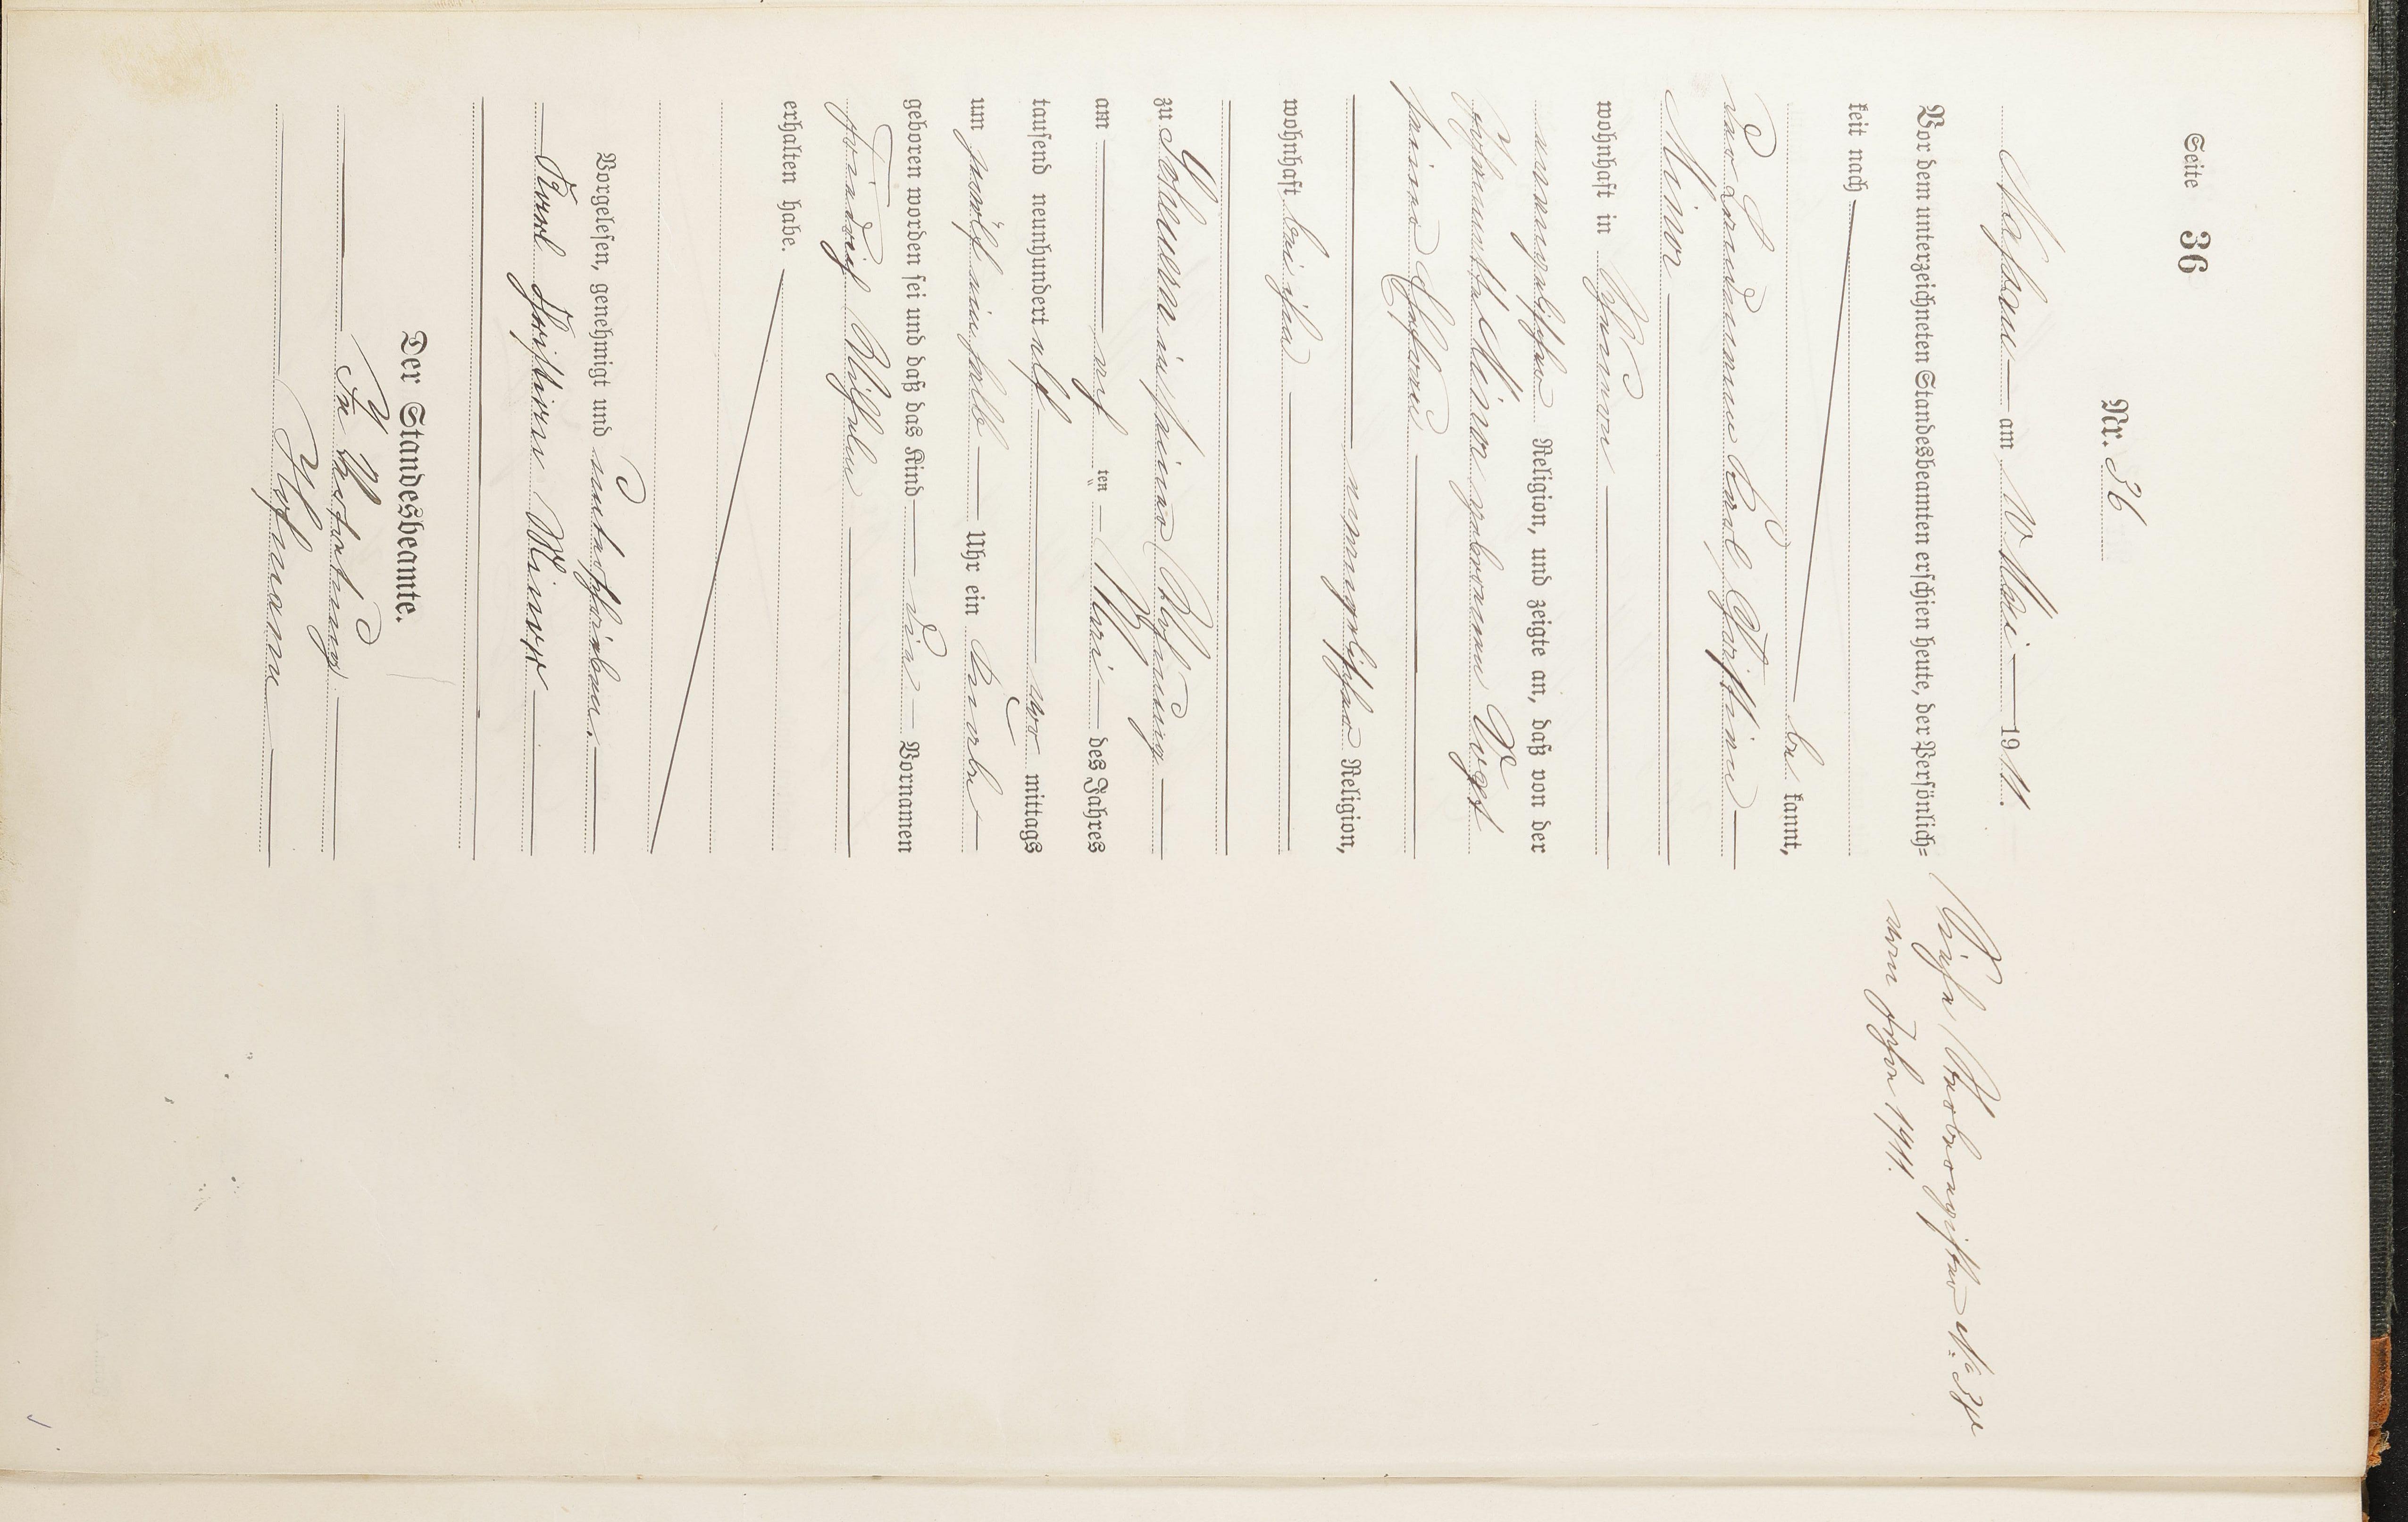 Seite 36
Nr. 36
Nassau am 10 Mai 1911.
Vor dem unterzeichneten Standesbeamten erschien heute, der Persönlich=
keit nach
be kannt,
der Landmann Karl Christian
Minor
wohnhaft in
evangelischer Religion, und zeigte an, daß von der
Minor geborenen Vogt
seiner Ehefrau
evangelischer Religion,
wohnhaft bei ihm
zu Scheuern in seiner Wohnung
am acht ten Mai des Jahres
tausend neunhundert elf vor mittags
um zwölf einhalb Uhr ein Knabe
geboren worden sei und daß das Kind die Vornamen
Friedrich Wilhelm
erhalten habe.
Vorgelesen, genehmigt und unterschrieben.
Karl Christian Minor
Der Standesbeamte.
In Vertretung
Hofmann
Siehe Sterberegister No.
vom Jahre 1911.